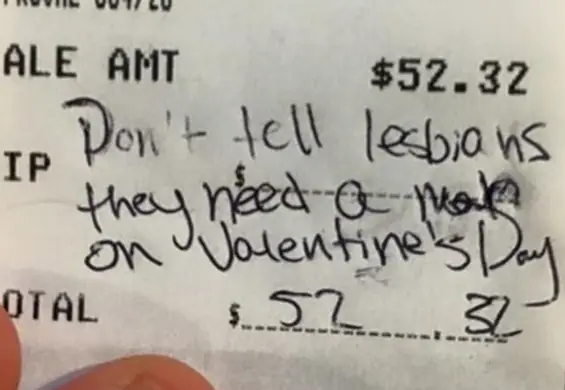 ALE AMT $52.32
Don't tell lesbians
IP $
they need a man
on Valentine's Day
OTAL $ 52.32